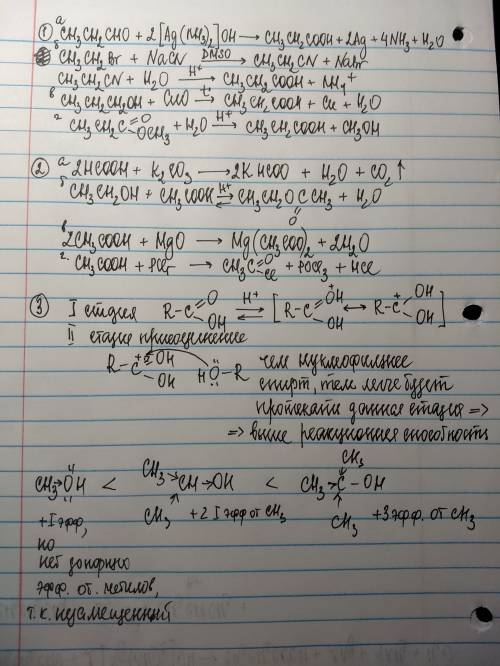 ① а CH3CH2CHO + 2[Ag(NH3)2]OH → CH3CH2COOH + 2Ag + 4NH3 + H2O
б CH3CH2Br + NaCN DMSO → CH3CH2CN + NaBr
CH3CH2CN + H2O H+ → CH3CH2COOH + NH4+
в CH3CH2CH2OH + CuO t → CH3CH2COOH + Cu + H2O
г CH3CH2C=O OCH3 + H2O H+ → CH3CH2COOH + CH3OH
② а 2HCOOH + K2CO3 → 2KHCOO + H2O + CO2↑
б CH3CH2OH + CH3COOH H+ ⇄ CH3CH2OCCH3 + H2O
O
в 2CH3COOH + MgO → Mg(CH3COO)2 + 2H2O
г CH3COOH + → CH3C=O Cl + POCl3 + HCl
③ I стадия R-C=O OH H+ ⇄ [R-C=OH+ OH ↔ R-C+ OH OH]
II стадия присоединение
R-C+ OH OH HO-R чем нуклеофильнее
спирт, тем легче будет
протекать данная стадия =>
=> выше реакционная способность
CH3→OH < CH3→CH→OH < CH3→C-OH
CH3 CH3 CH3
+I эфф, +2 I эфф от CH3 +3 эфф. от CH3
но
нет
эфф. от. метилов,
т.к.